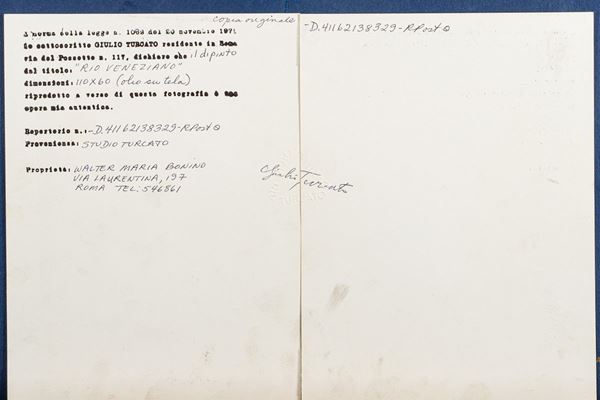 copia originale
A norma della legge n. 1062 del 20 novembre 1971
io sottoscritto GIULIO TURCATO residente in Roma
ria del Pozzetto n. 117, dichiaro che il dipinto
dal titolo: "RIO VENEZIANO"
dimensioni: 110X60 (olio su tela)
riprodotto a verso di questa fotografia è una
opera mia autentica.
Repertorio n.: -D.41162138329-RPost O
Provenienza: STUDIO TURCATO
Proprietà: WALTER MARIA BONINO
VIA LAURENTINA, 197
ROMA TEL: 546861
-D.41162138329-RPost O
Giulio Turcato
TURCATO